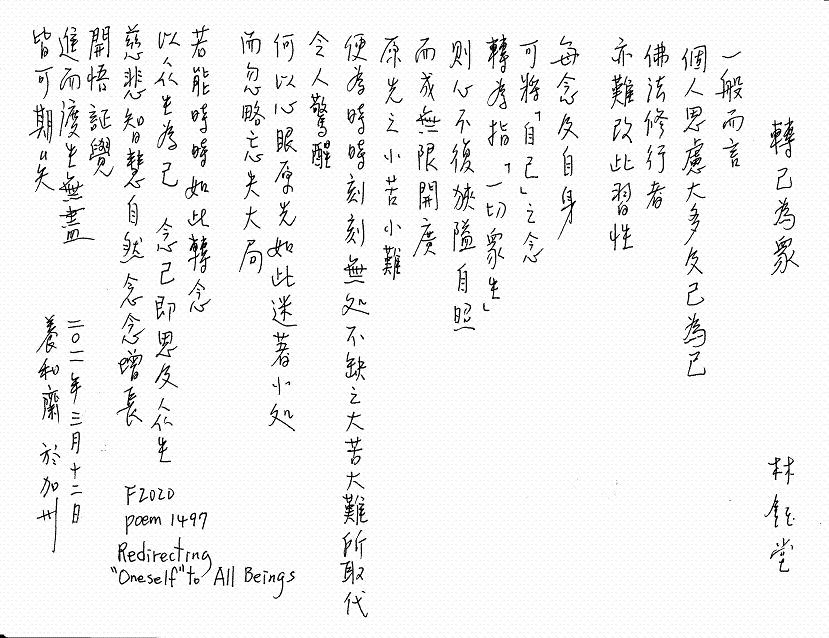 轉己為眾
林鈺堂
一般而言
個人思慮大多及己為己
佛法修行者
亦難改此習性
每念及自身
可將「自己」之念
轉為指「一切眾生」
則心不復狹隘自照
而成無限開廣
原先之小苦小難
便為時時刻刻無処不缺之大苦大難所取代
令人驚醒
何以心眼原先如此迷著小処
而忽略忘失大局
若能時時如此轉念
以众生為己 念己即思及众生
慈悲智慧自然念念增長
開悟証覺
進而渡生無盡
皆可期必矣
二〇一一年三月十二日
養和齋 於加州
F2020
poem 1497
Redirecting
"Oneself" to All Beings